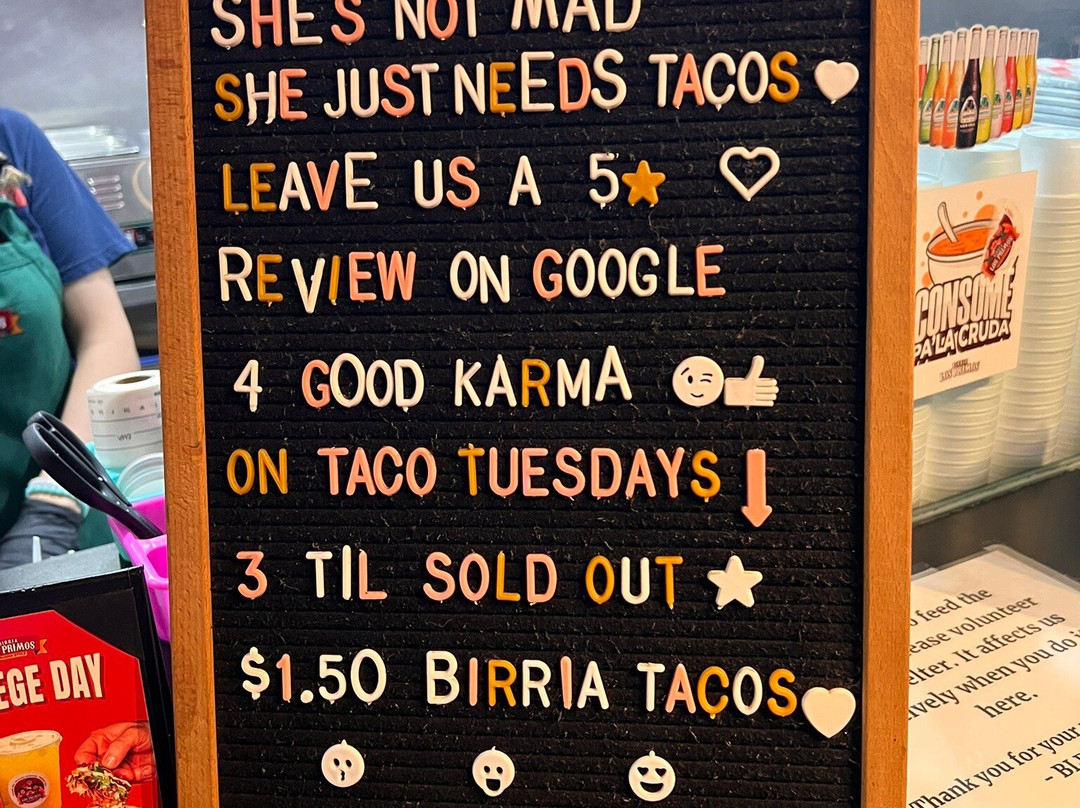 SHE'S NOT MAD
SHE JUST NEEDS TACOS
LEAVE US A 5
REVIEW ON GOOGLE
4 GOOD KARMA
ON TACO TUESDAYS
3 TIL SOLD OUT
$1.50 BIRRIA TACOS
CONSOME
PA' LA CRUDA
PRIMOS
EGE DAY
feed the
ease volunteer
lter. It affects us
ively when you do i
here.
Thank you for your
- BL